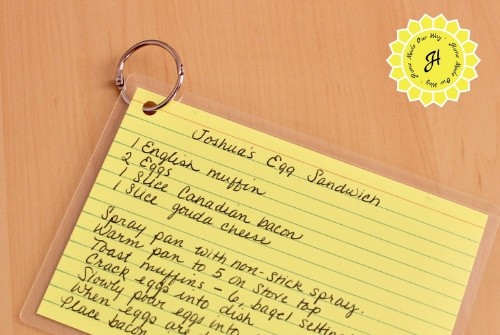 Joshua's Egg Sandwich
1 English muffin
2 Eggs
1 slice Canadian bacon
1 slice gouda cheese
Spray pan with non-stick spray.
Warm pan to 5 on stove top
Toast muffins - 6, bagel setting
Crack eggs into dish
Slowly pour eggs into
When eggs are
Place bacon
Home Made Our Way · Home Made Our Way ·
JH